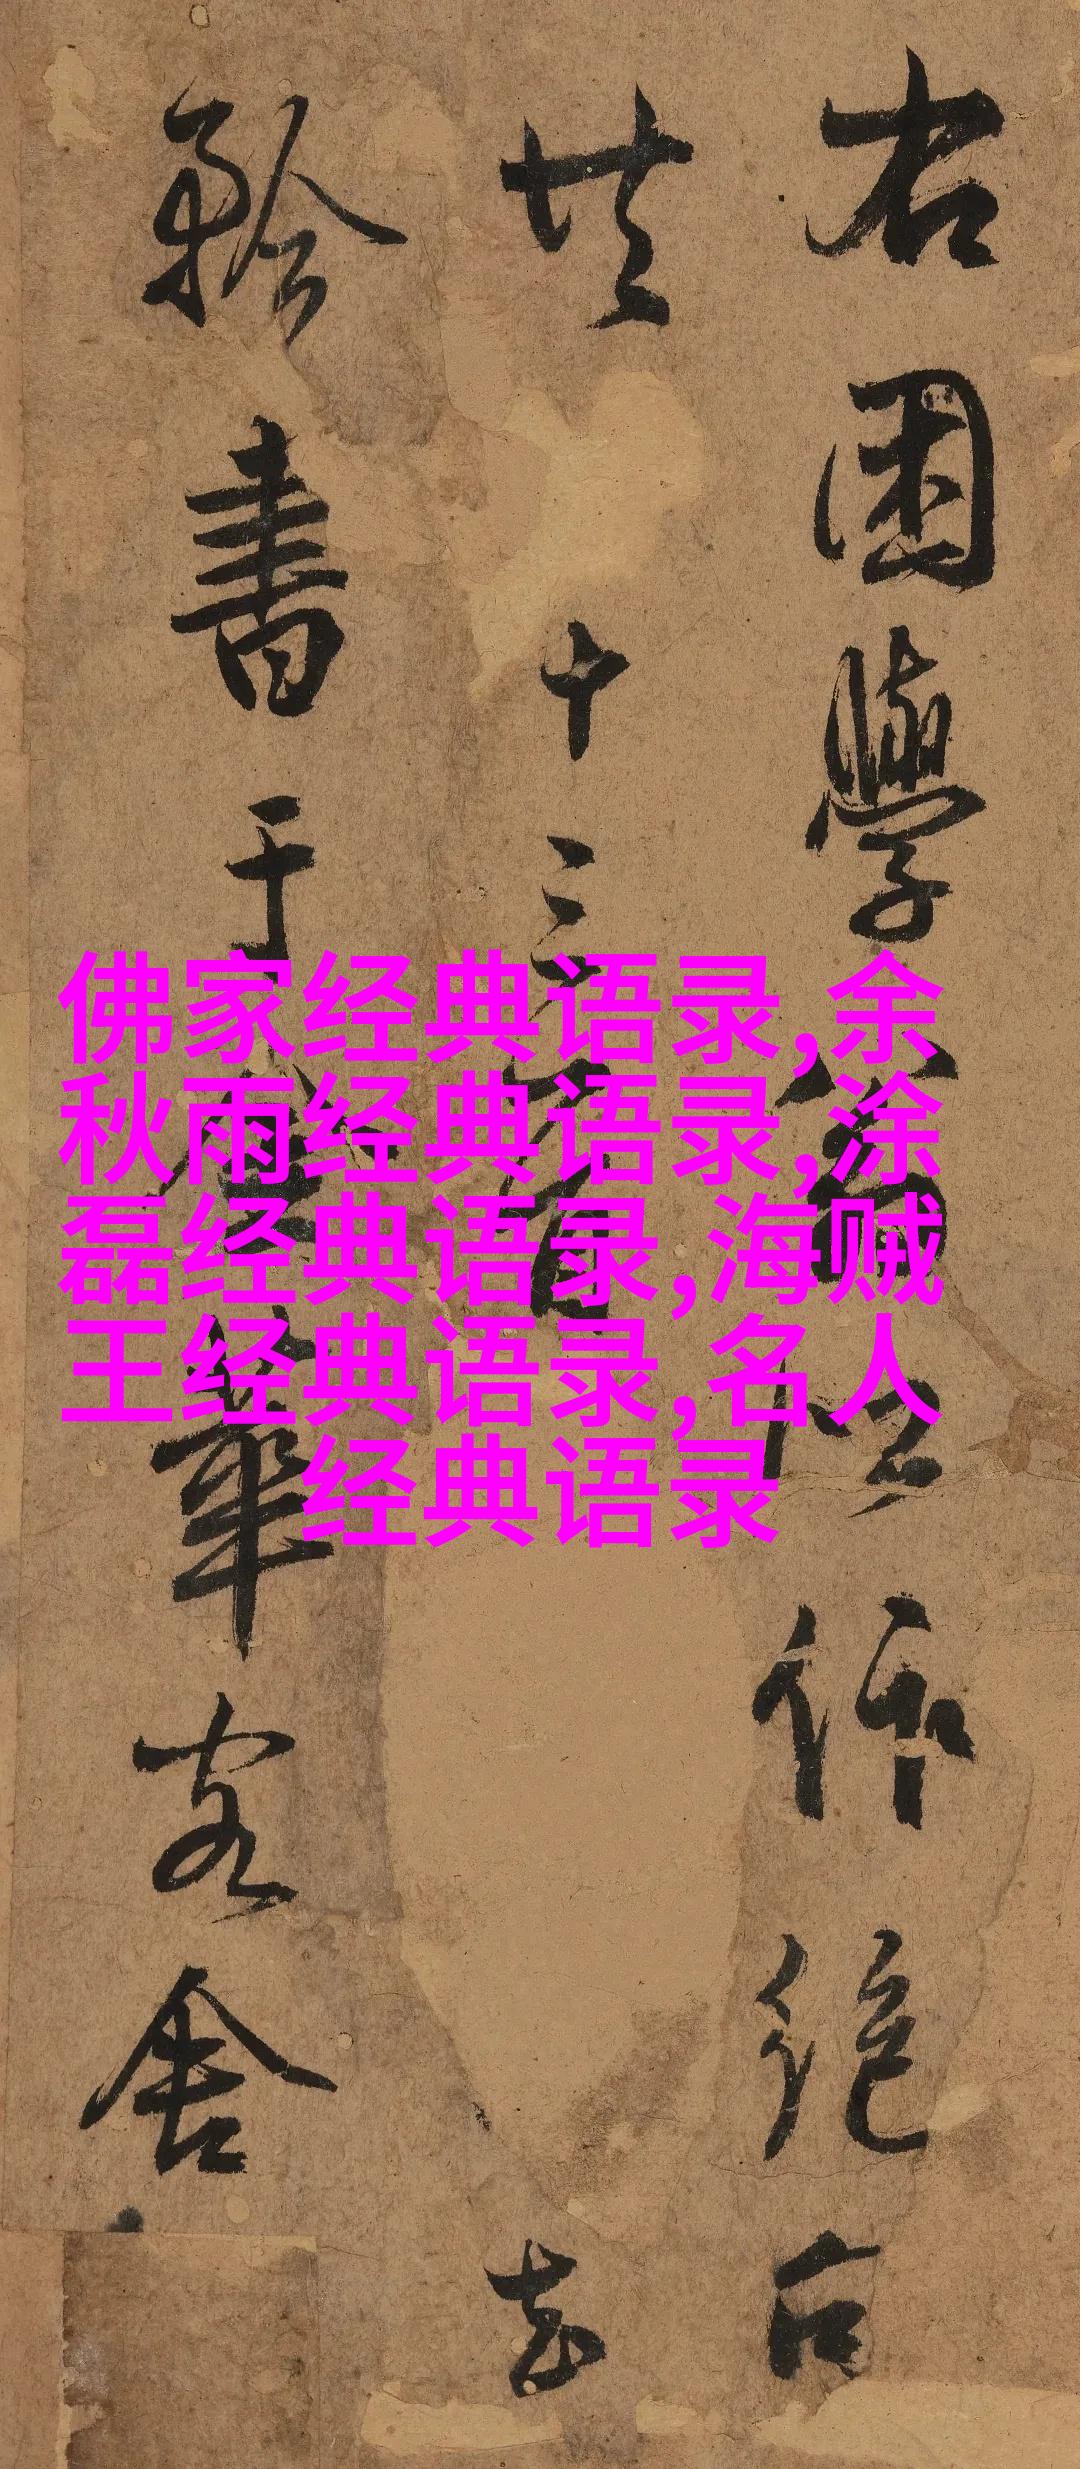 佛家经典语录,余
秋雨经典语录,涂
磊经典语录,海贼
王经典语录,名人
经典语录
右困學作絕句
共十三首至
書于華客舍